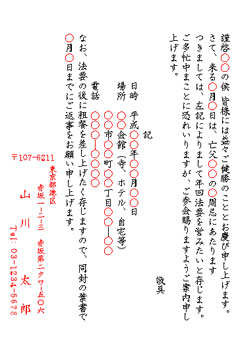 謹啓 〇〇の候 皆様には益々ご健勝のこととお慶び申し上げます。
さて、来る〇月〇日は、亡父〇〇の一周忌にあたります
つきましては、左記によりまして年回法要を営みたいと存じます。
ご多忙中まことに恐れいりますが、ご参会賜りますようご案内申し
上げます。
敬具
記
日時 平成〇〇年〇月〇〇日
場所 〇〇会館(寺、ホテル、自宅等)
〇〇市〇〇町〇〇丁目〇〇―〇〇
電話 〇〇〇―〇〇―〇〇〇〇
なお、法要の後に粗餐を差し上げたく存じますので、同封の葉書で
〇月〇日までにご返事をお願い申し上げます。
〒107-6211
東京都港区
赤坂1-2-3 赤坂第二タワー五〇六
山川 太郎
Tel:03-1234-5678